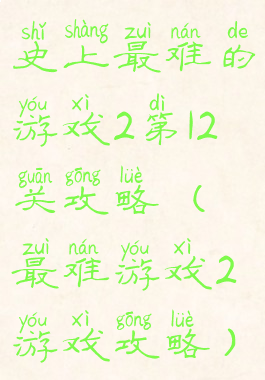 shǐ shàng zuì nán de
史上最难的
yóu xì dì
游戏2第12
guān gōng lüè
关攻略（
zuì nán yóu xì
最难游戏2
yóu xì gōng lüè
游戏攻略）